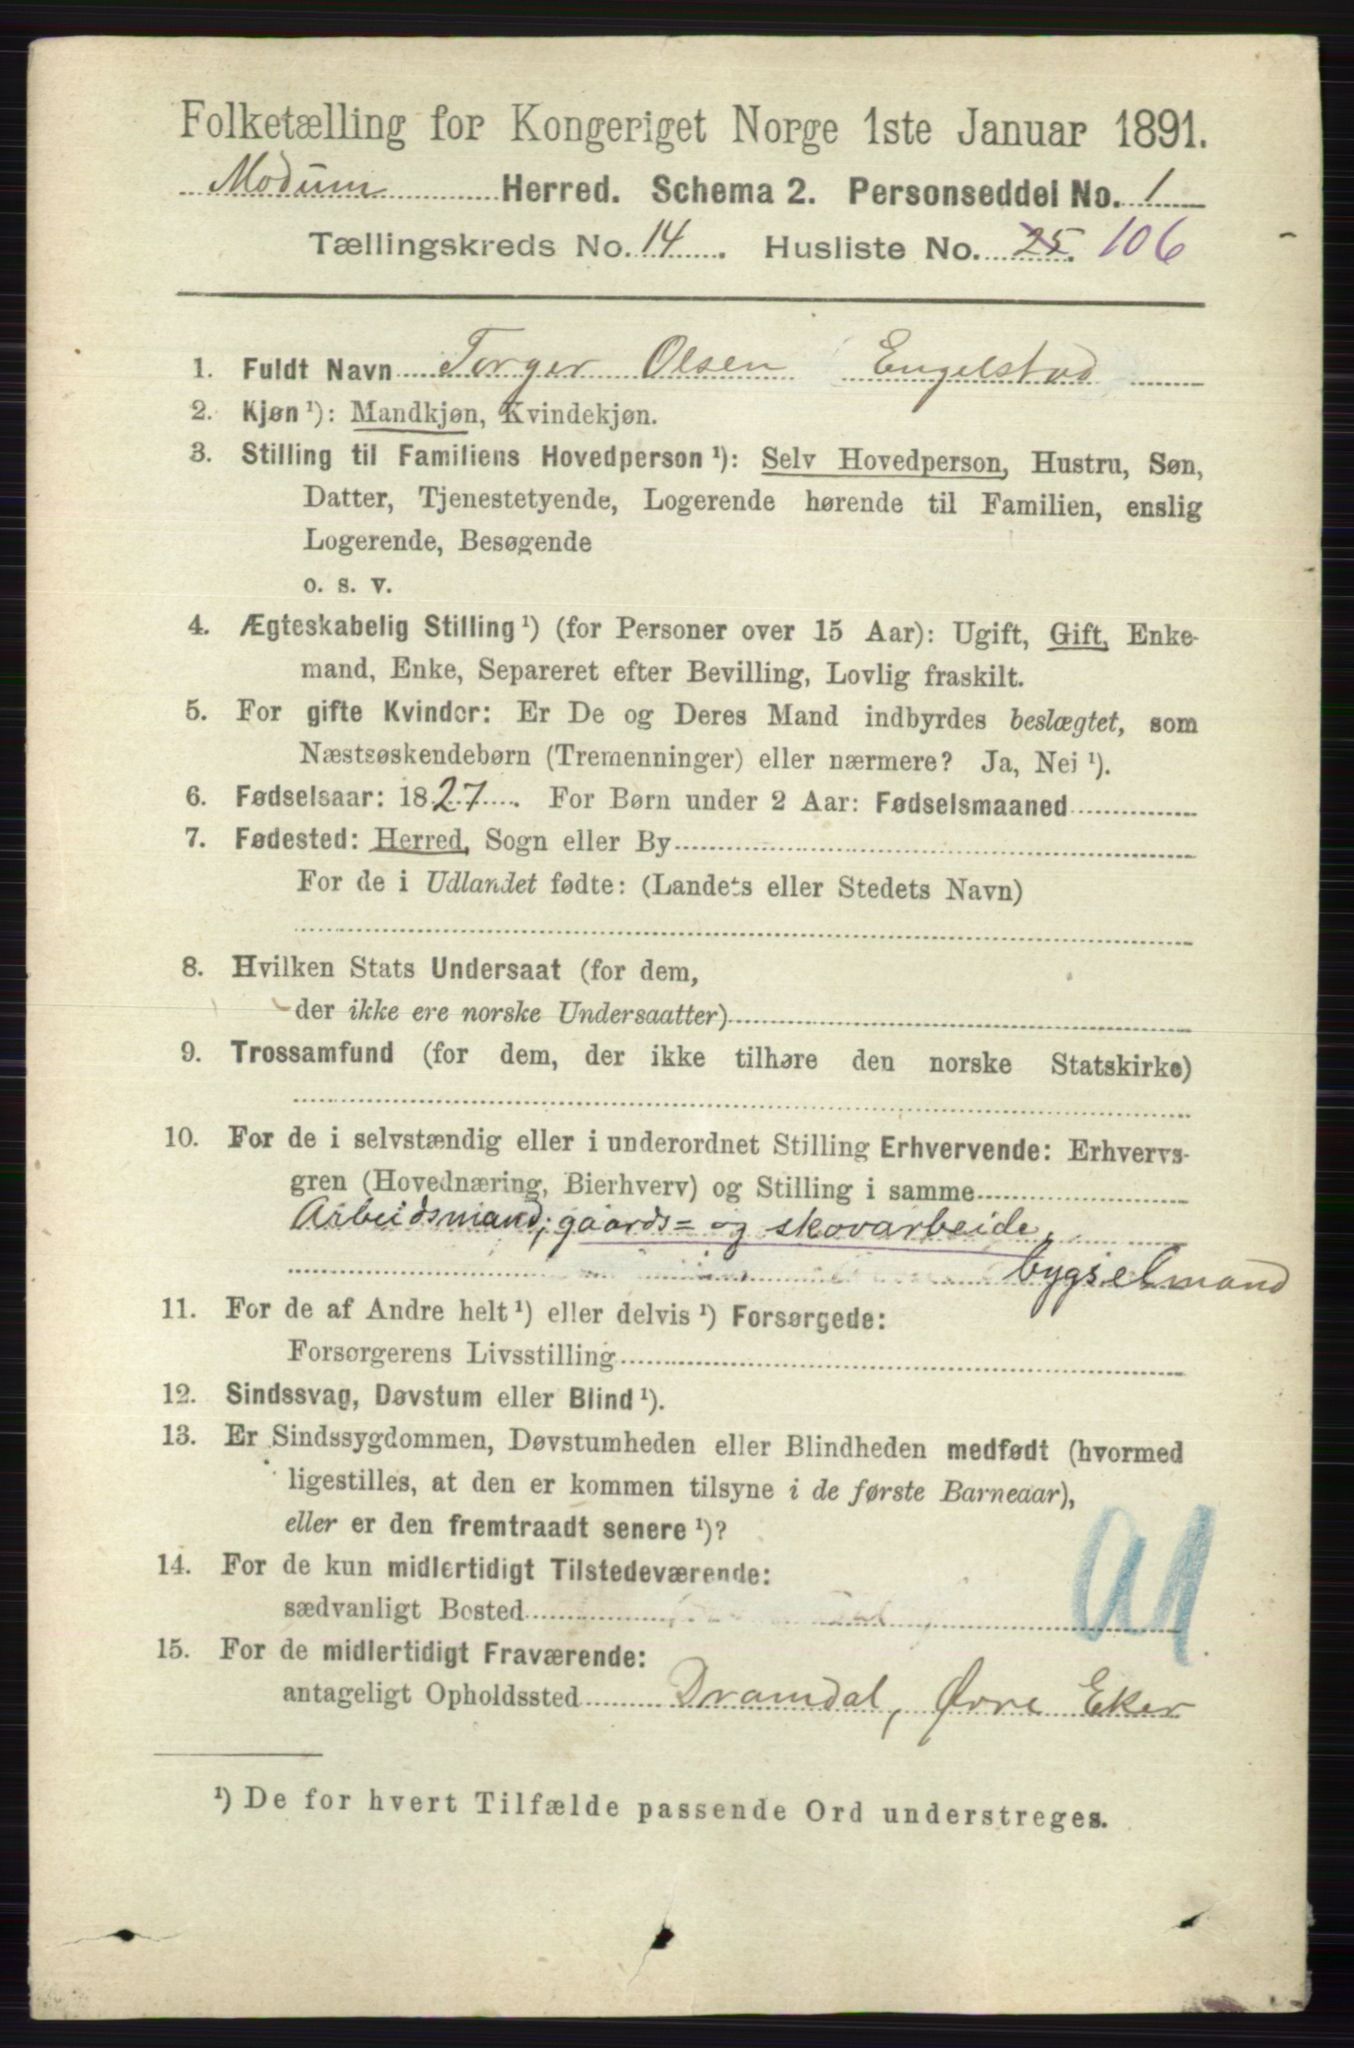 Folketælling for Kongeriget Norge 1ste Januar 1891.
Modum Herred. Schema 2. Personseddel No. 1
Tællingskreds No. 14. Husliste No. 25. 106
1. Fuldt Navn Torger Olsen Engelstad
2. Kjøn ¹): Mandkjøn, Kvindekjøn.
3. Stilling til Familiens Hovedperson ¹): Selv Hovedperson, Hustru, Søn,
Datter, Tjenestetyende, Logerende hørende til Familien, enslig
Logerende, Besøgende
o. s. v.
4. Ægteskabelig Stilling ¹) (for Personer over 15 Aar): Ugift, Gift, Enke-
mand, Enke, Separeret efter Bevilling, Lovlig fraskilt.
5. For gifte Kvinder: Er De og Deres Mand indbyrdes beslægtet, som
Næstsøskendebørn (Tremenninger) eller nærmere? Ja, Nei ¹).
6. Fødselsaar: 1827. For Børn under 2 Aar: Fødselsmaaned
7. Fødested: Herred, Sogn eller By
For de i Udlandet fødte: (Landets eller Stedets Navn)
8. Hvilken Stats Undersaat (for dem,
der ikke ere norske Undersaatter)
9. Trossamfund (for dem, der ikke tilhøre den norske Statskirke)
10. For de i selvstændig eller i underordnet Stilling Erhvervende: Erhvervs-
gren (Hovednæring, Bierhverv) og Stilling i samme
Arbeidsmand; gaards= og skovarbeide,
bygselmand
11. For de af Andre helt ¹) eller delvis ¹) Forsørgede:
Forsørgerens Livsstilling
12. Sindssvag, Døvstum eller Blind ¹).
13. Er Sindssygdommen, Døvstumheden eller Blindheden medfødt (hvormed
ligestilles, at den er kommen tilsyne i de første Barneaar),
eller er den fremtraadt senere ¹)?
14. For de kun midlertidigt Tilstedeværende:
sædvanligt Bosted
15. For de midlertidigt Fraværende:
antageligt Opholdssted Dramdal, Øvre Eker
¹) De for hvert Tilfælde passende Ord understreges.